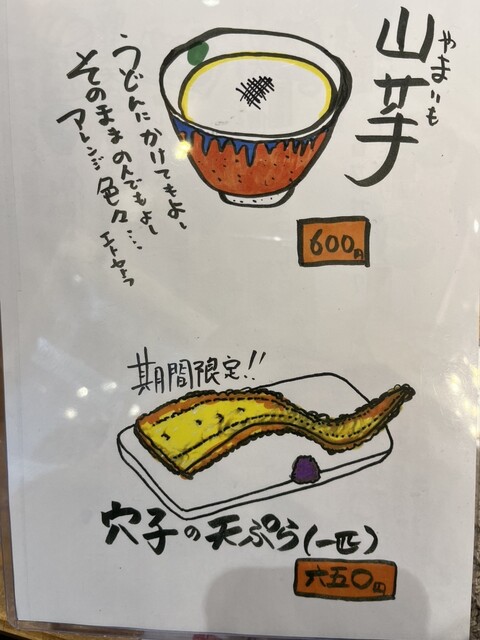 山芋
やまいも
うどんにかけてもよし
そのままのんでもよし
アレンジ色々…
エトセトラ
600円
期間限定!!
穴子の天ぷら(一匹)
六五〇円